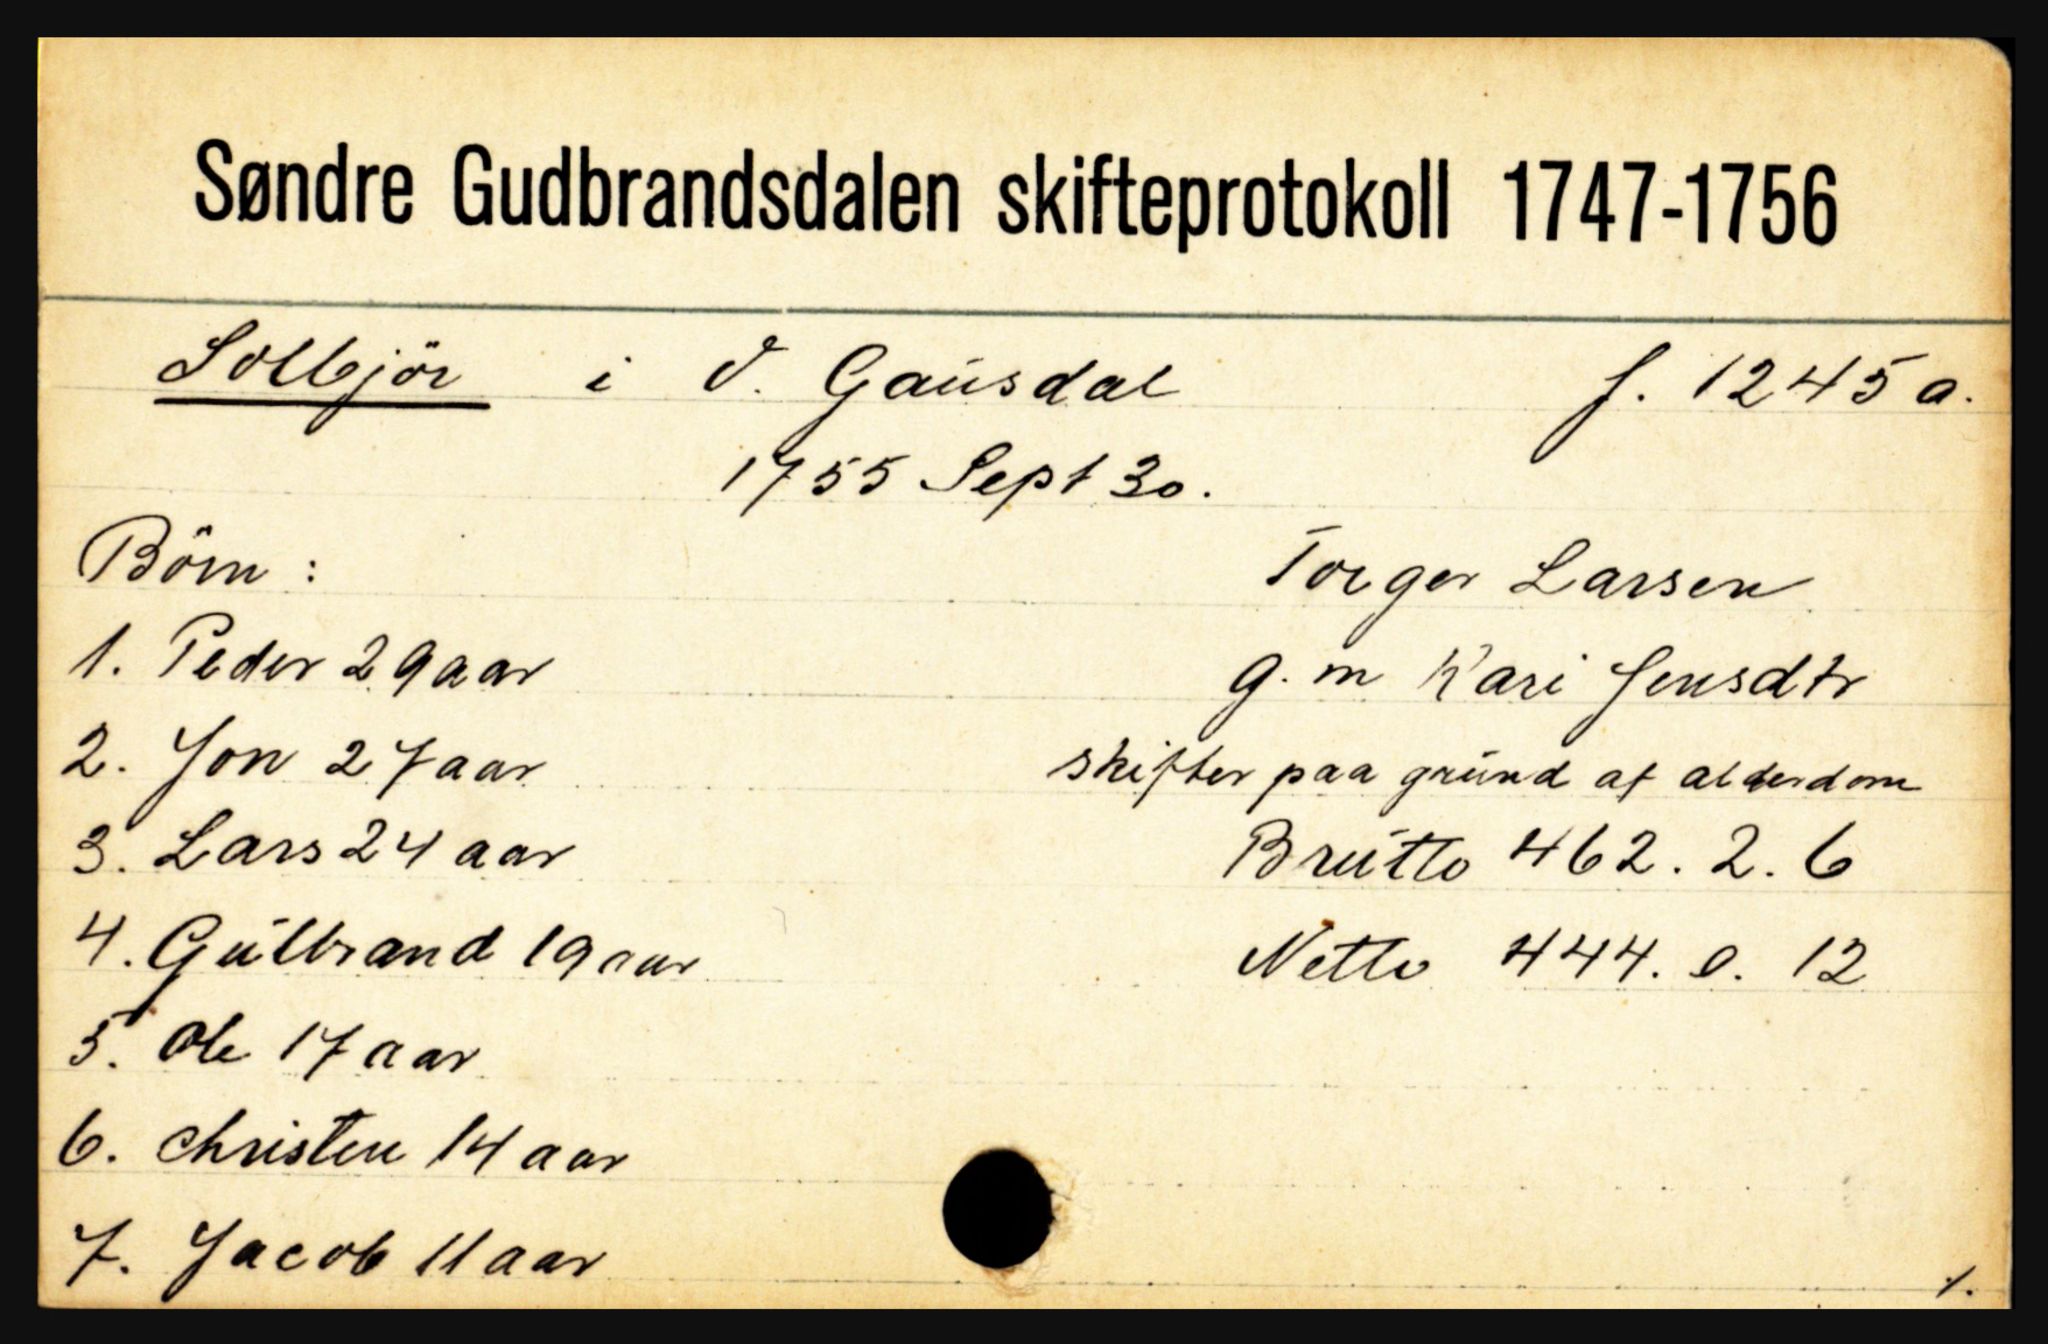 Søndre Gudbrandsdalen skifteprotokoll 1747-1756
Solbjör i V. Gausdal f. 1245 a.
1755 Sept 30.
Börn :
Torger Larsen
1. Peder 29 aar
g. m Kari Jensdtr
2. Jon 27 aar
skifter paa grund af alderdom
3. Lars 24 aar
Brutto 462. 2. 6
4. Gulbrand 19 aar
Netto 444. 0. 12
5. Ole 17 aar
6. Christen 14 aar
7. Jacob 11 aar
1.